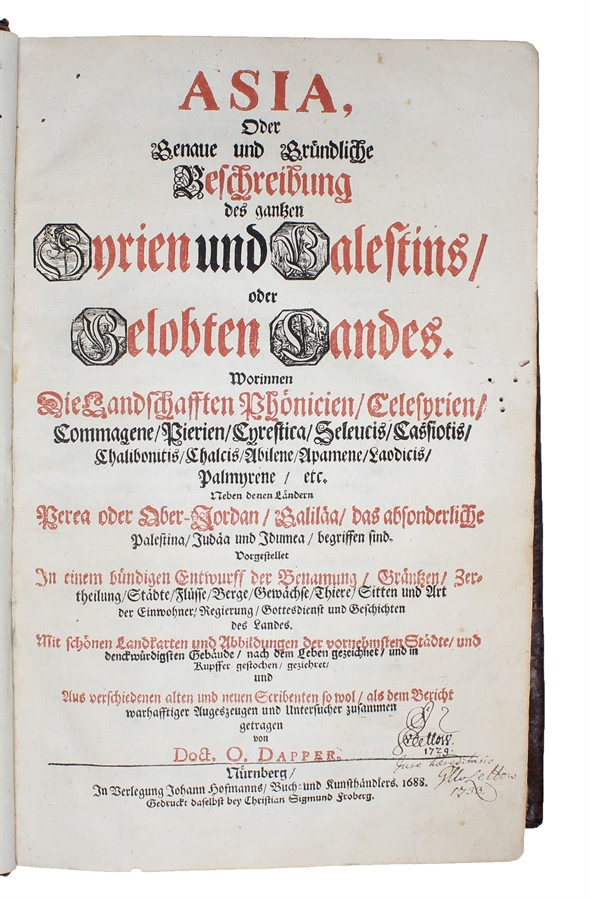 ASIA,
Oder
Genaue und Gründliche
Beschreibung
des gantzen
Syrien und Palestins/
oder
Gelobten Landes.
Worinnen
Die Landschafften Phönicien/ Celesyrien/
Commagene/ Pierien/ Cyrestica/ Seleucis/ Cassiotis/
Chalibonitis/ Chalcis/ Abilene/ Apamene/ Laodicis/
Palmyrene / etc.
Neben denen Ländern
Perea oder Ober-Jordan/ Galiläa/ das absonderliche
Palestina/ Judäa und Idumea / begriffen sind.
Vorgestellet
In einem bündigen Entwurff der Benamung/ Gräntzen/ Zer-
theilung/ Städte/ Flüsse/ Berge/ Gewächse/ Thiere/ Sitten und Art
der Einwohner/ Regierung/ Gottesdienst und Geschichten
des Landes.
Mit schönen Landkarten und Abbildungen der vornehmsten Städte/ und
denckwürdigsten Gebäude/ nach dem Leben gezeichnet/ und in
Kupffer gestochen/ geziehret/
und
Aus verschiedenen alten und neuen Scribenten so wol/ als dem Bericht
warhafftiger Augeszeugen und Untersucher zusammen
getragen
von
Doct. O. DAPPER.
Nürnberg/
In Verlegung Johann Hofmanns/ Buch- und Kunsthändlers. 1688.
Gedruckt daselbst bey Christian Sigmund Froberg.
1729.
Jure haereditario
Lettow